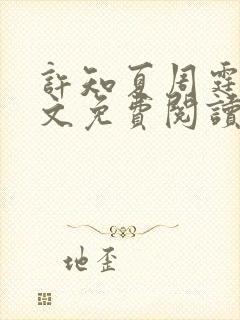 許知夏周霆
文免費閱讀
地歪